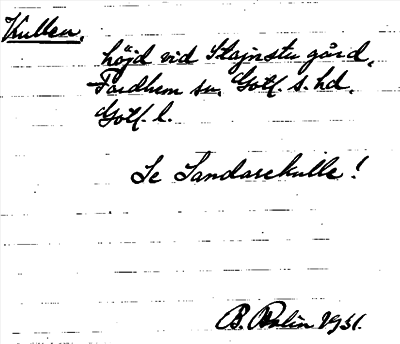 Kullen,
höjd vid Stajnstu gård,
Fardhem sn. Gotl. s. hd.
Gotl. l.
Se Sandarekulle!
B. Bolin 1931.